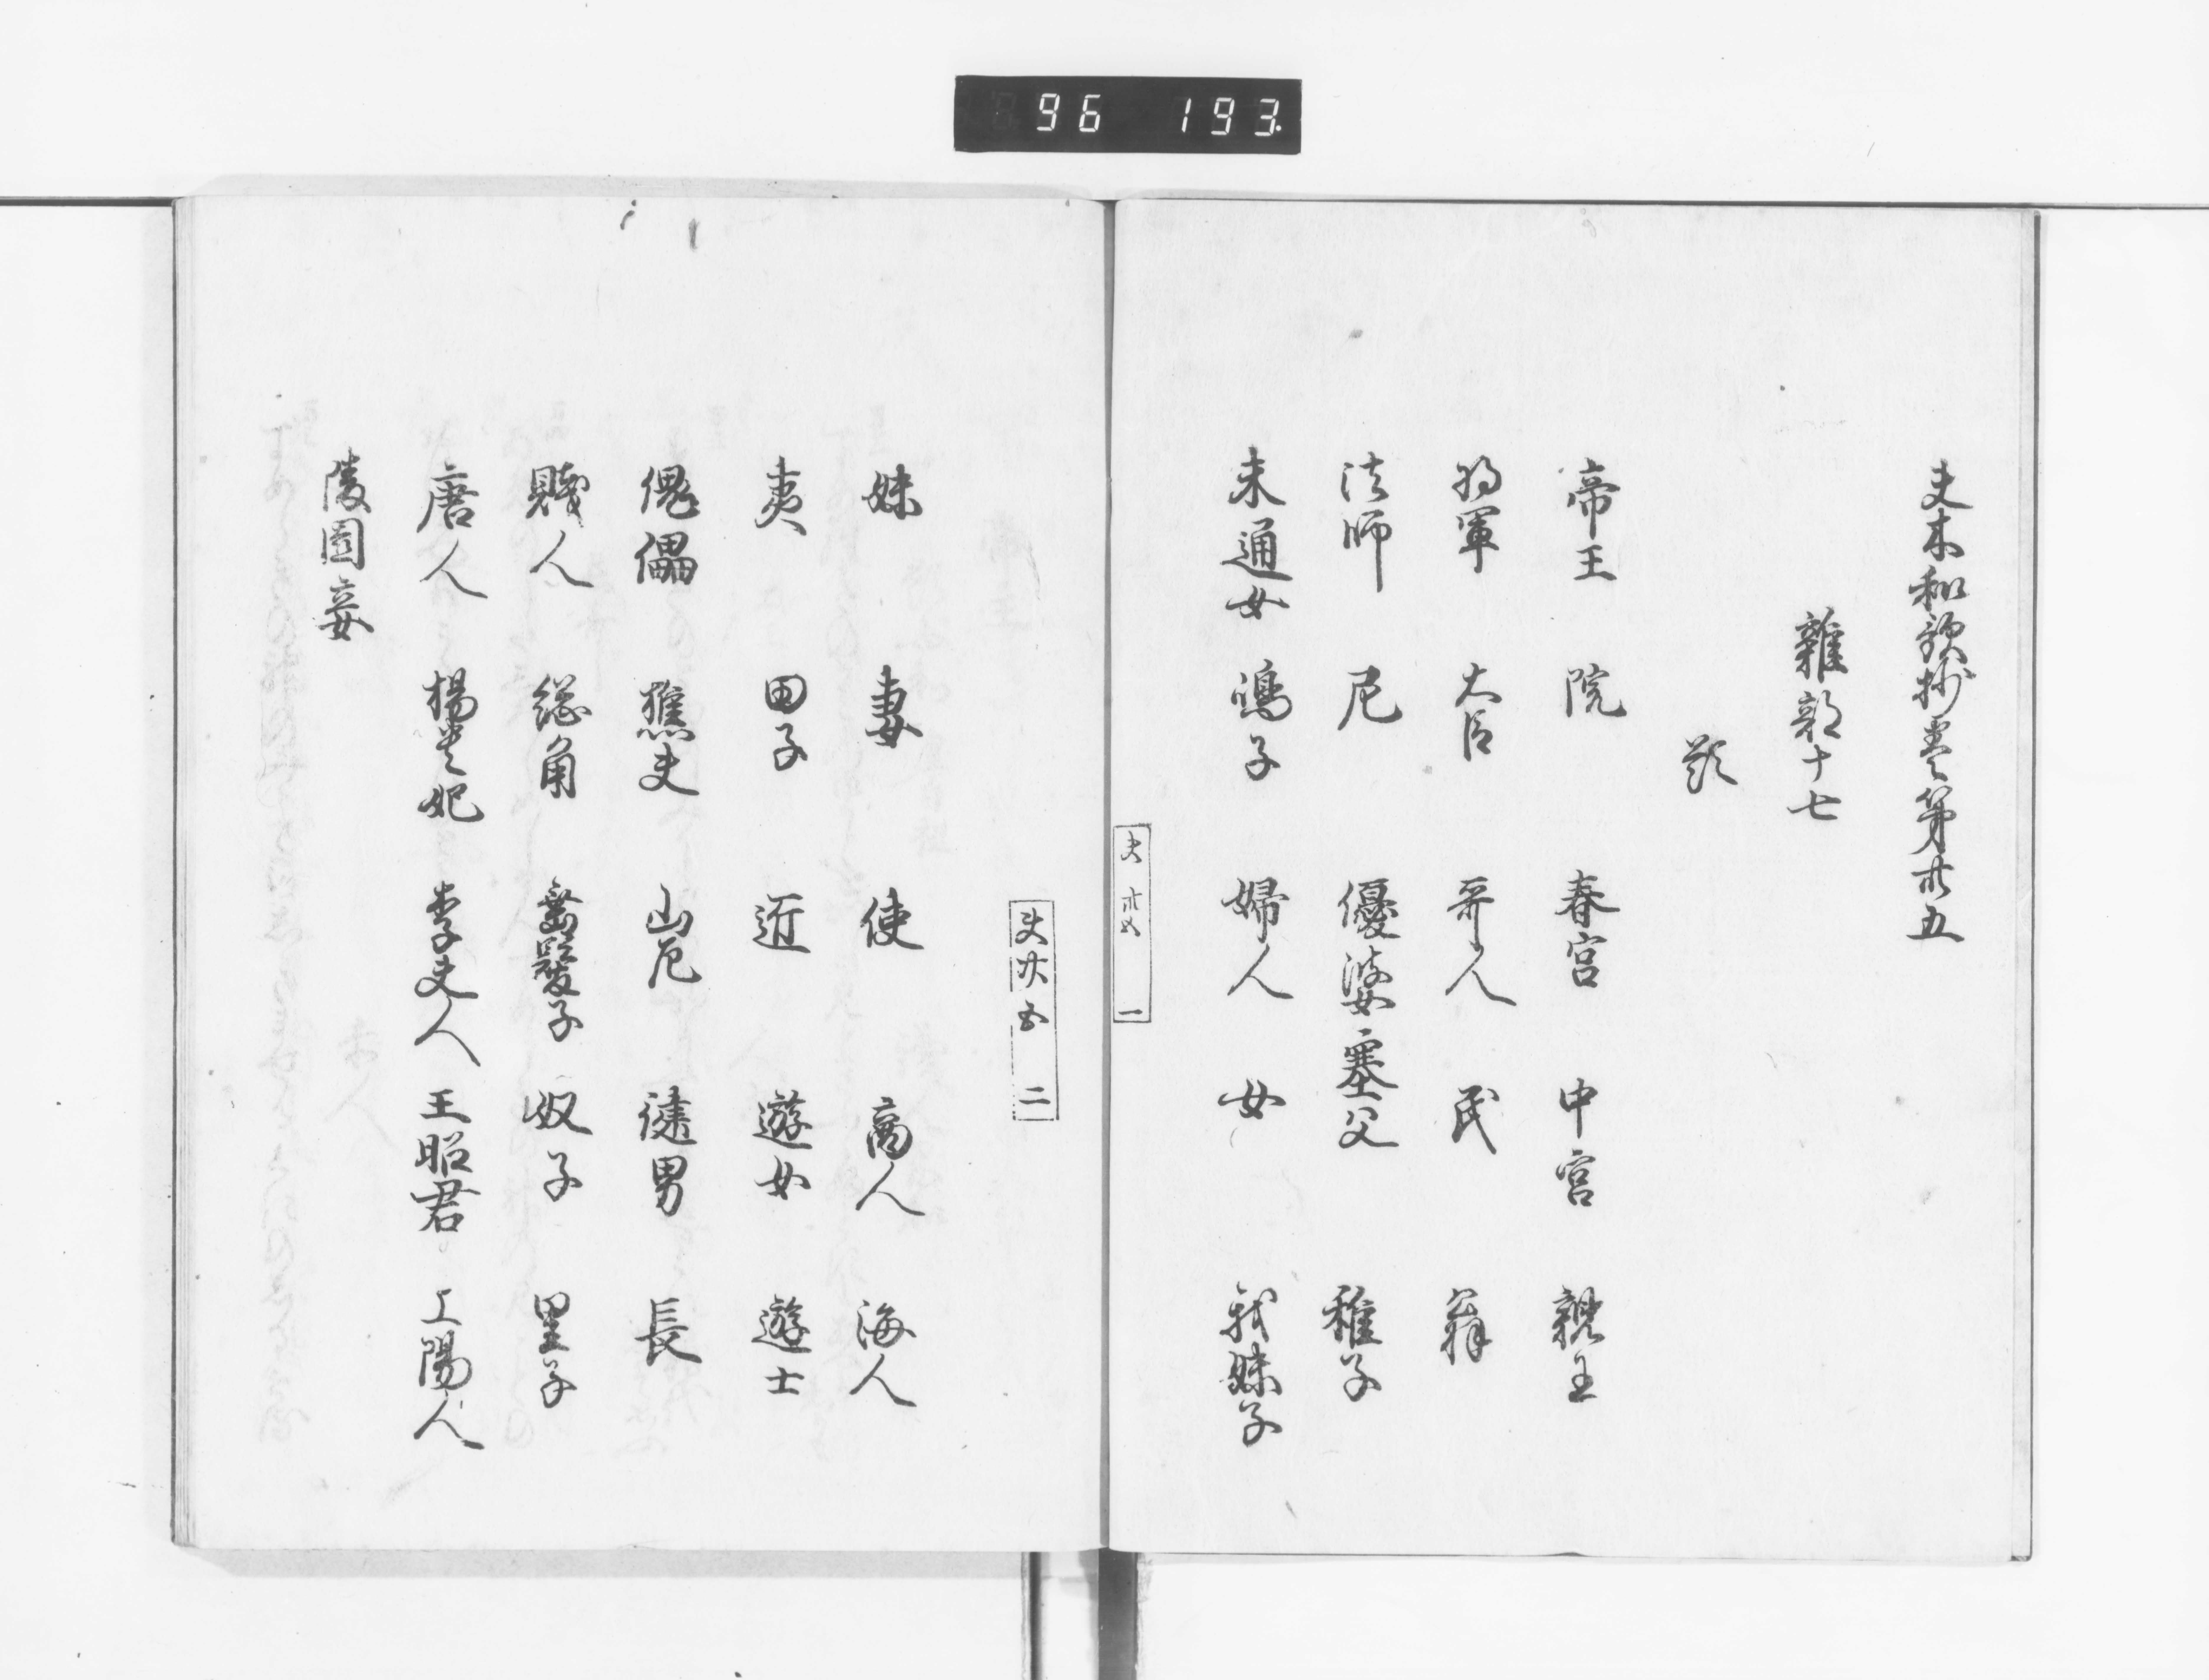 夫木和歌抄巻第卅五
雑部十七
題
帝王 院 春宮 中宮 親王
将軍 大臣 哥人 民 翁
法師 尼 優婆塞 父 稚子
未通女 鳴子 婦人 女 我妹子
夫 卅五 一
夫卅五 二
妹 妻 使 商人 海人
夷 田子 近 遊女 遊士
傀儡 樵夫 山 健男 長
賤人 総角 髫髪子 奴子 里子
唐人 楊貴妃 李夫人 王昭君 上陽人
陵園妾
96 193